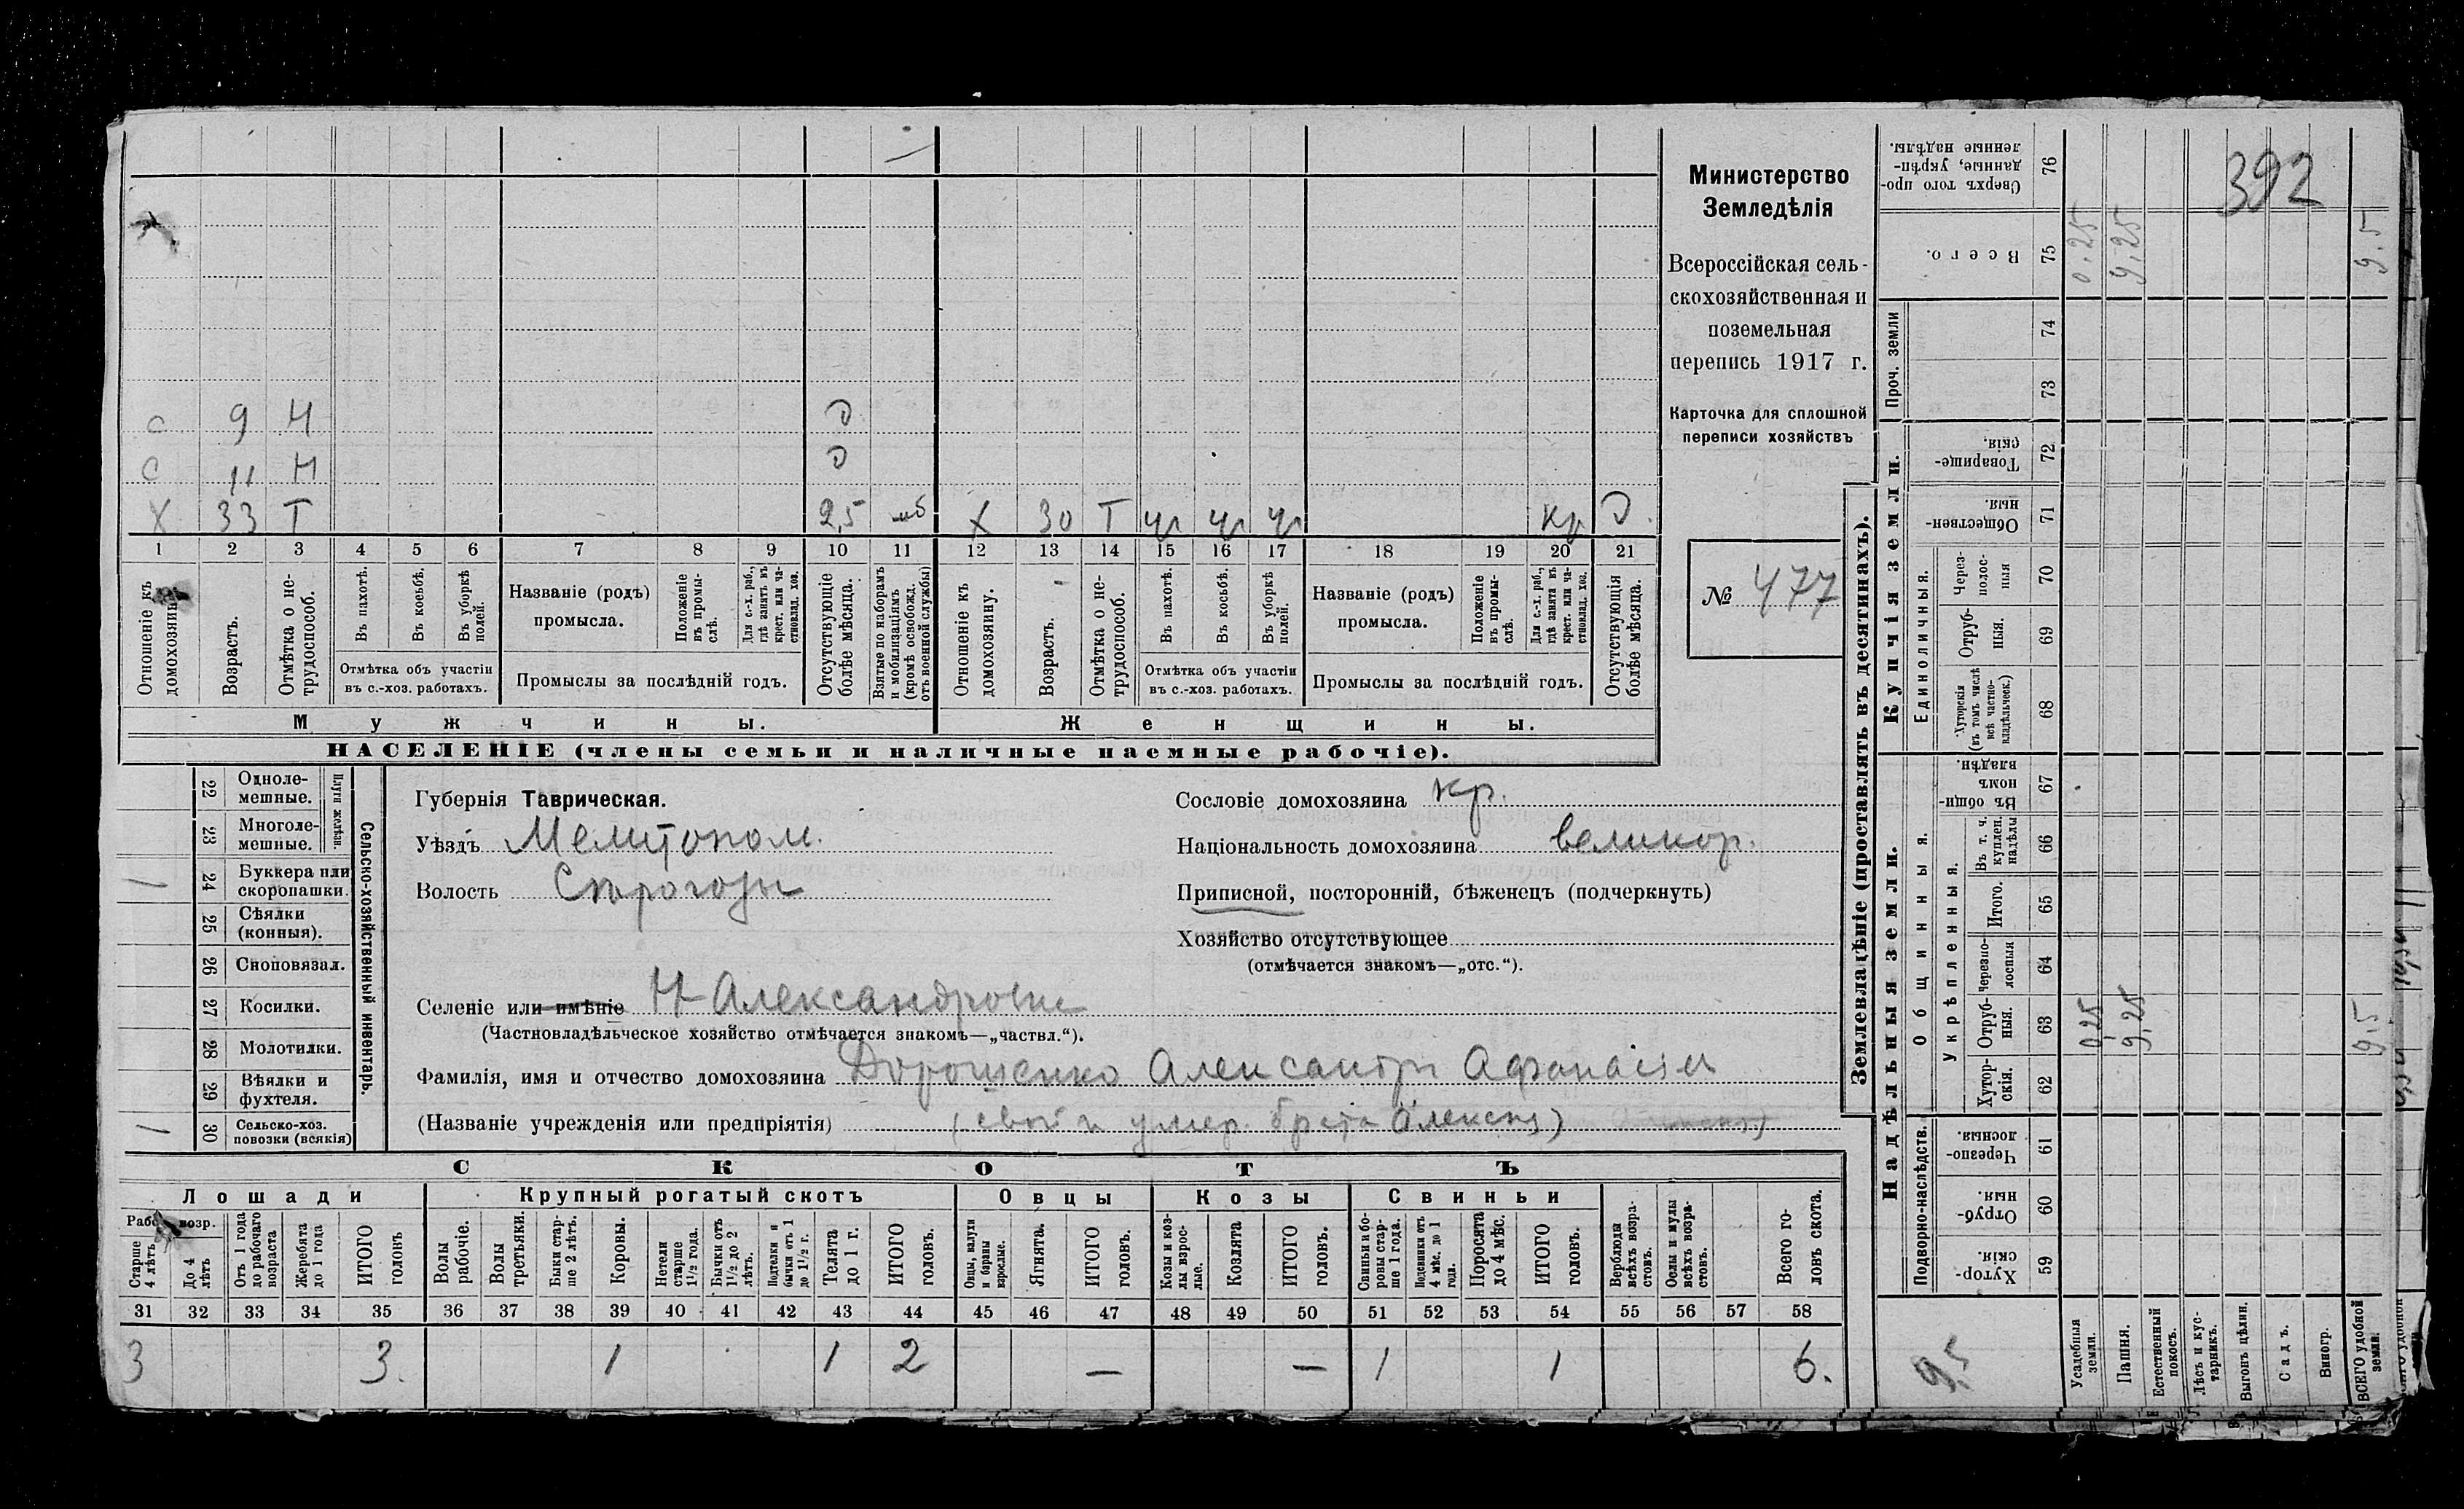 Министерство
Земледѣлія
Всероссійская сель-
скохозяйственная и
поземельная
перепись 1917 г.
Карточка для сплошной
переписи хозяйствъ
№ 477
392
с 9 Н О
с 11 Н О
Х 33 Т 2,5 мб Х 30 Т ч ч ч кр О
1 2 3 4 5 6 7 8 9 10 11 12 13 14 15 16 17 18 19 20 21
Отношеніе къ домохозяину.
Возрастъ.
Отмѣтка о не-трудоспособ.
Въ пахотѣ.
Въ косьбѣ.
Въ уборкѣ полей.
Отмѣтка объ участіи
въ с.-хоз. работахъ.
Названіе (родъ)
промысла.
Положеніе въ промы-слѣ.
Для с.-х. раб., гдѣ занятъ въ крест. или ча-стновлад. хоз.
Промыслы за послѣдній годъ.
Отсутствующіе болѣе мѣсяца.
Взятые по наборамъ и мобилизаціямъ (кромѣ освобожд. отъ военной службы)
Отношеніе къ домохозяину.
Возрастъ.
Отмѣтка о не-трудоспособ.
Въ пахотѣ.
Въ косьбѣ.
Въ уборкѣ полей.
Отмѣтка объ участіи
въ с.-хоз. работахъ.
Названіе (родъ)
промысла.
Положеніе въ промы-слѣ.
Для с.-х. раб., гдѣ занята въ крест. или ча-стновлад. хоз.
Промыслы за послѣдній годъ.
Отсутствующія болѣе мѣсяца.
Мужчины.
Женщины.
НАСЕЛЕНІЕ (члены семьи и наличные наемные рабочіе).
22 Одноле-мешные.
23 Многоле-мешные.
Плуги желѣзн.
24 Буккера или скоропашки.
25 Сѣялки (конныя).
26 Сноповязал.
27 Косилки.
28 Молотилки.
29 Вѣялки и фухтеля.
30 Сельско-хоз. повозки (всякія)
Сельско-хозяйственный инвентарь.
Губернія Таврическая.
Уѣздъ Мелитопол.
Волость
Сословіе домохозяина кр.
Національность домохозяина великор.
Приписной, посторонній, бѣженецъ (подчеркнуть)
Хозяйство отсутствующее
(отмѣчается знакомъ—„отс.“).
Селеніе или имѣніе Н-Александровка
(Частновладѣльческое хозяйство отмѣчается знакомъ—„частвл.“).
Фамилія, имя и отчество домохозяина Дорошенко Александръ Афанасіев
(Названіе учрежденія или предпріятія) (свой и умер. брата Алексѣя)
СКОТЪ
Лошади Крупный рогатый скотъ Овцы Козы Свиньи
Рабоч. возр.
Старше 4 лѣтъ
До 4 лѣтъ
Отъ 1 года до рабочаго возраста
Жеребята до 1 года
ИТОГО головъ
Волы рабочіе.
Волы третьяки.
Быки стар-ше 2 лѣтъ.
Коровы.
Нетели старше 1½ года.
Бычки отъ 1½ до 2 лѣтъ.
Подтелки и бычки отъ 1 до 1½ г.
Телята до 1 г.
ИТОГО головъ.
Овцы, валухи и бараны взрослые.
Ягнята.
ИТОГО головъ.
Козы и коз-лы взрос-лые.
Козлята
ИТОГО головъ.
Свиньи и бо-ровы стар-ше 1 года.
Подсвинки отъ 4 мѣс. до 1 года.
Поросята до 4 мѣс.
ИТОГО головъ.
Верблюды всѣхъ возра-стовъ.
Ослы и мулы всѣхъ возра-стовъ.
Всего го-ловъ скота.
31 32 33 34 35 36 37 38 39 40 41 42 43 44 45 46 47 48 49 50 51 52 53 54 55 56 57 58
3 3. 1 1 2 — — 1 1 6.
Землевладѣніе (проставлять въ десятинахъ).
Надѣльныя земли.
Купчія земли.
Проч. земли
Подворно-наслѣдств.
Общинныя.
Укрѣпленныя.
Единоличныя.
Сверхъ того про-данные, укрѣп-ленные надѣлы. 76
Всего. 75 0,25 9,25 9,5
74
73
Товарище-скія. 72
Обществен-ныя 71
Через-полос-ныя 70
Отруб-ныя. 69
Хуторскія (въ томъ числѣ всѣ частно-владѣльческ.) 68
Въ общи-номъ владѣн. 67
Въ т. ч. куплен. надѣлы 66
Итого. 65
Черезпо-лосныя 64
Отруб-ныя. 63 0,25 9,25 9,5
Хутор-скія. 62
Черезпо-лосныя. 61
Отруб-ныя. 60
Хутор-скія. 59
9,5
Усадебныя земли.
Пашня.
Естественный покосъ.
Лѣсъ и кус-тарникъ.
Выгонъ цѣлин.
Садъ.
Виногр.
ВСЕГО удобной земли.